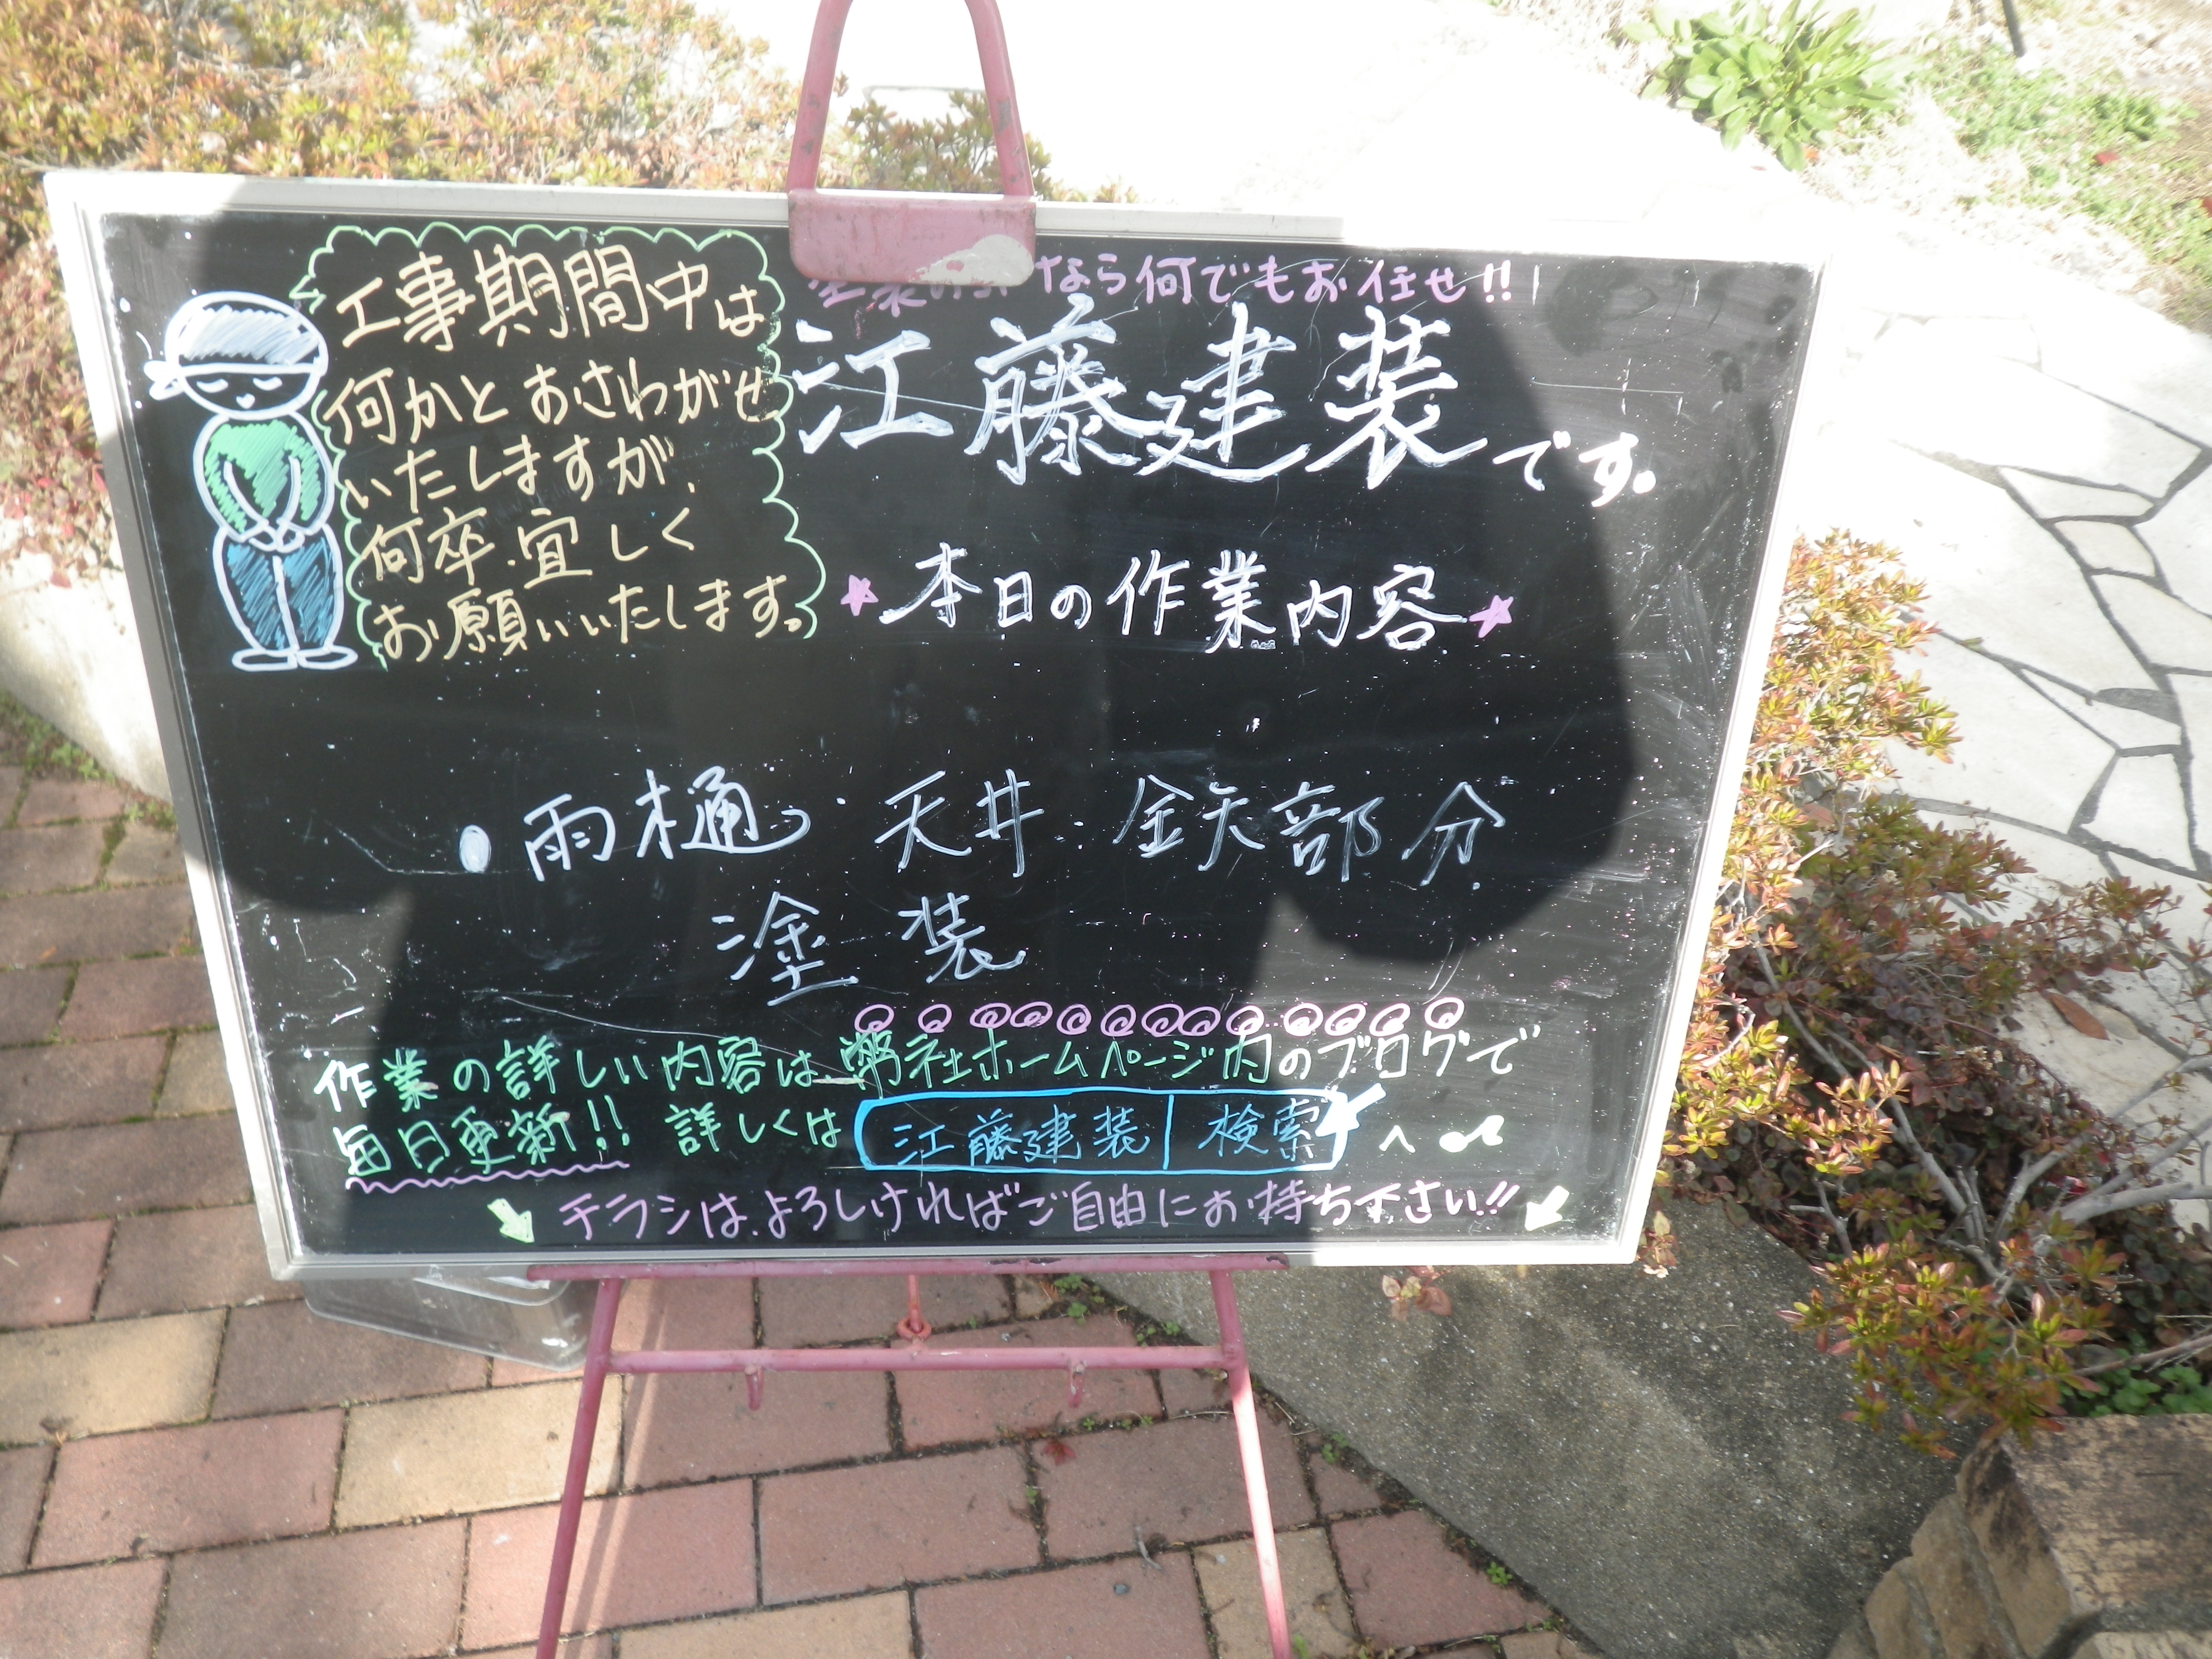 工事期間中は
何かとおさわがせ
いたしますが、
何卒宜しく
お願いいたします。
なら何でもお任せ!!
江藤建装です。
★本日の作業内容★
・雨樋・天井・鉄部分
塗装
作業の詳しい内容は弊社ホームページ内のブログで
毎日更新!! 詳しくは 江藤建装 検索 へ
チラシは、よろしければご自由にお持ち下さい!!